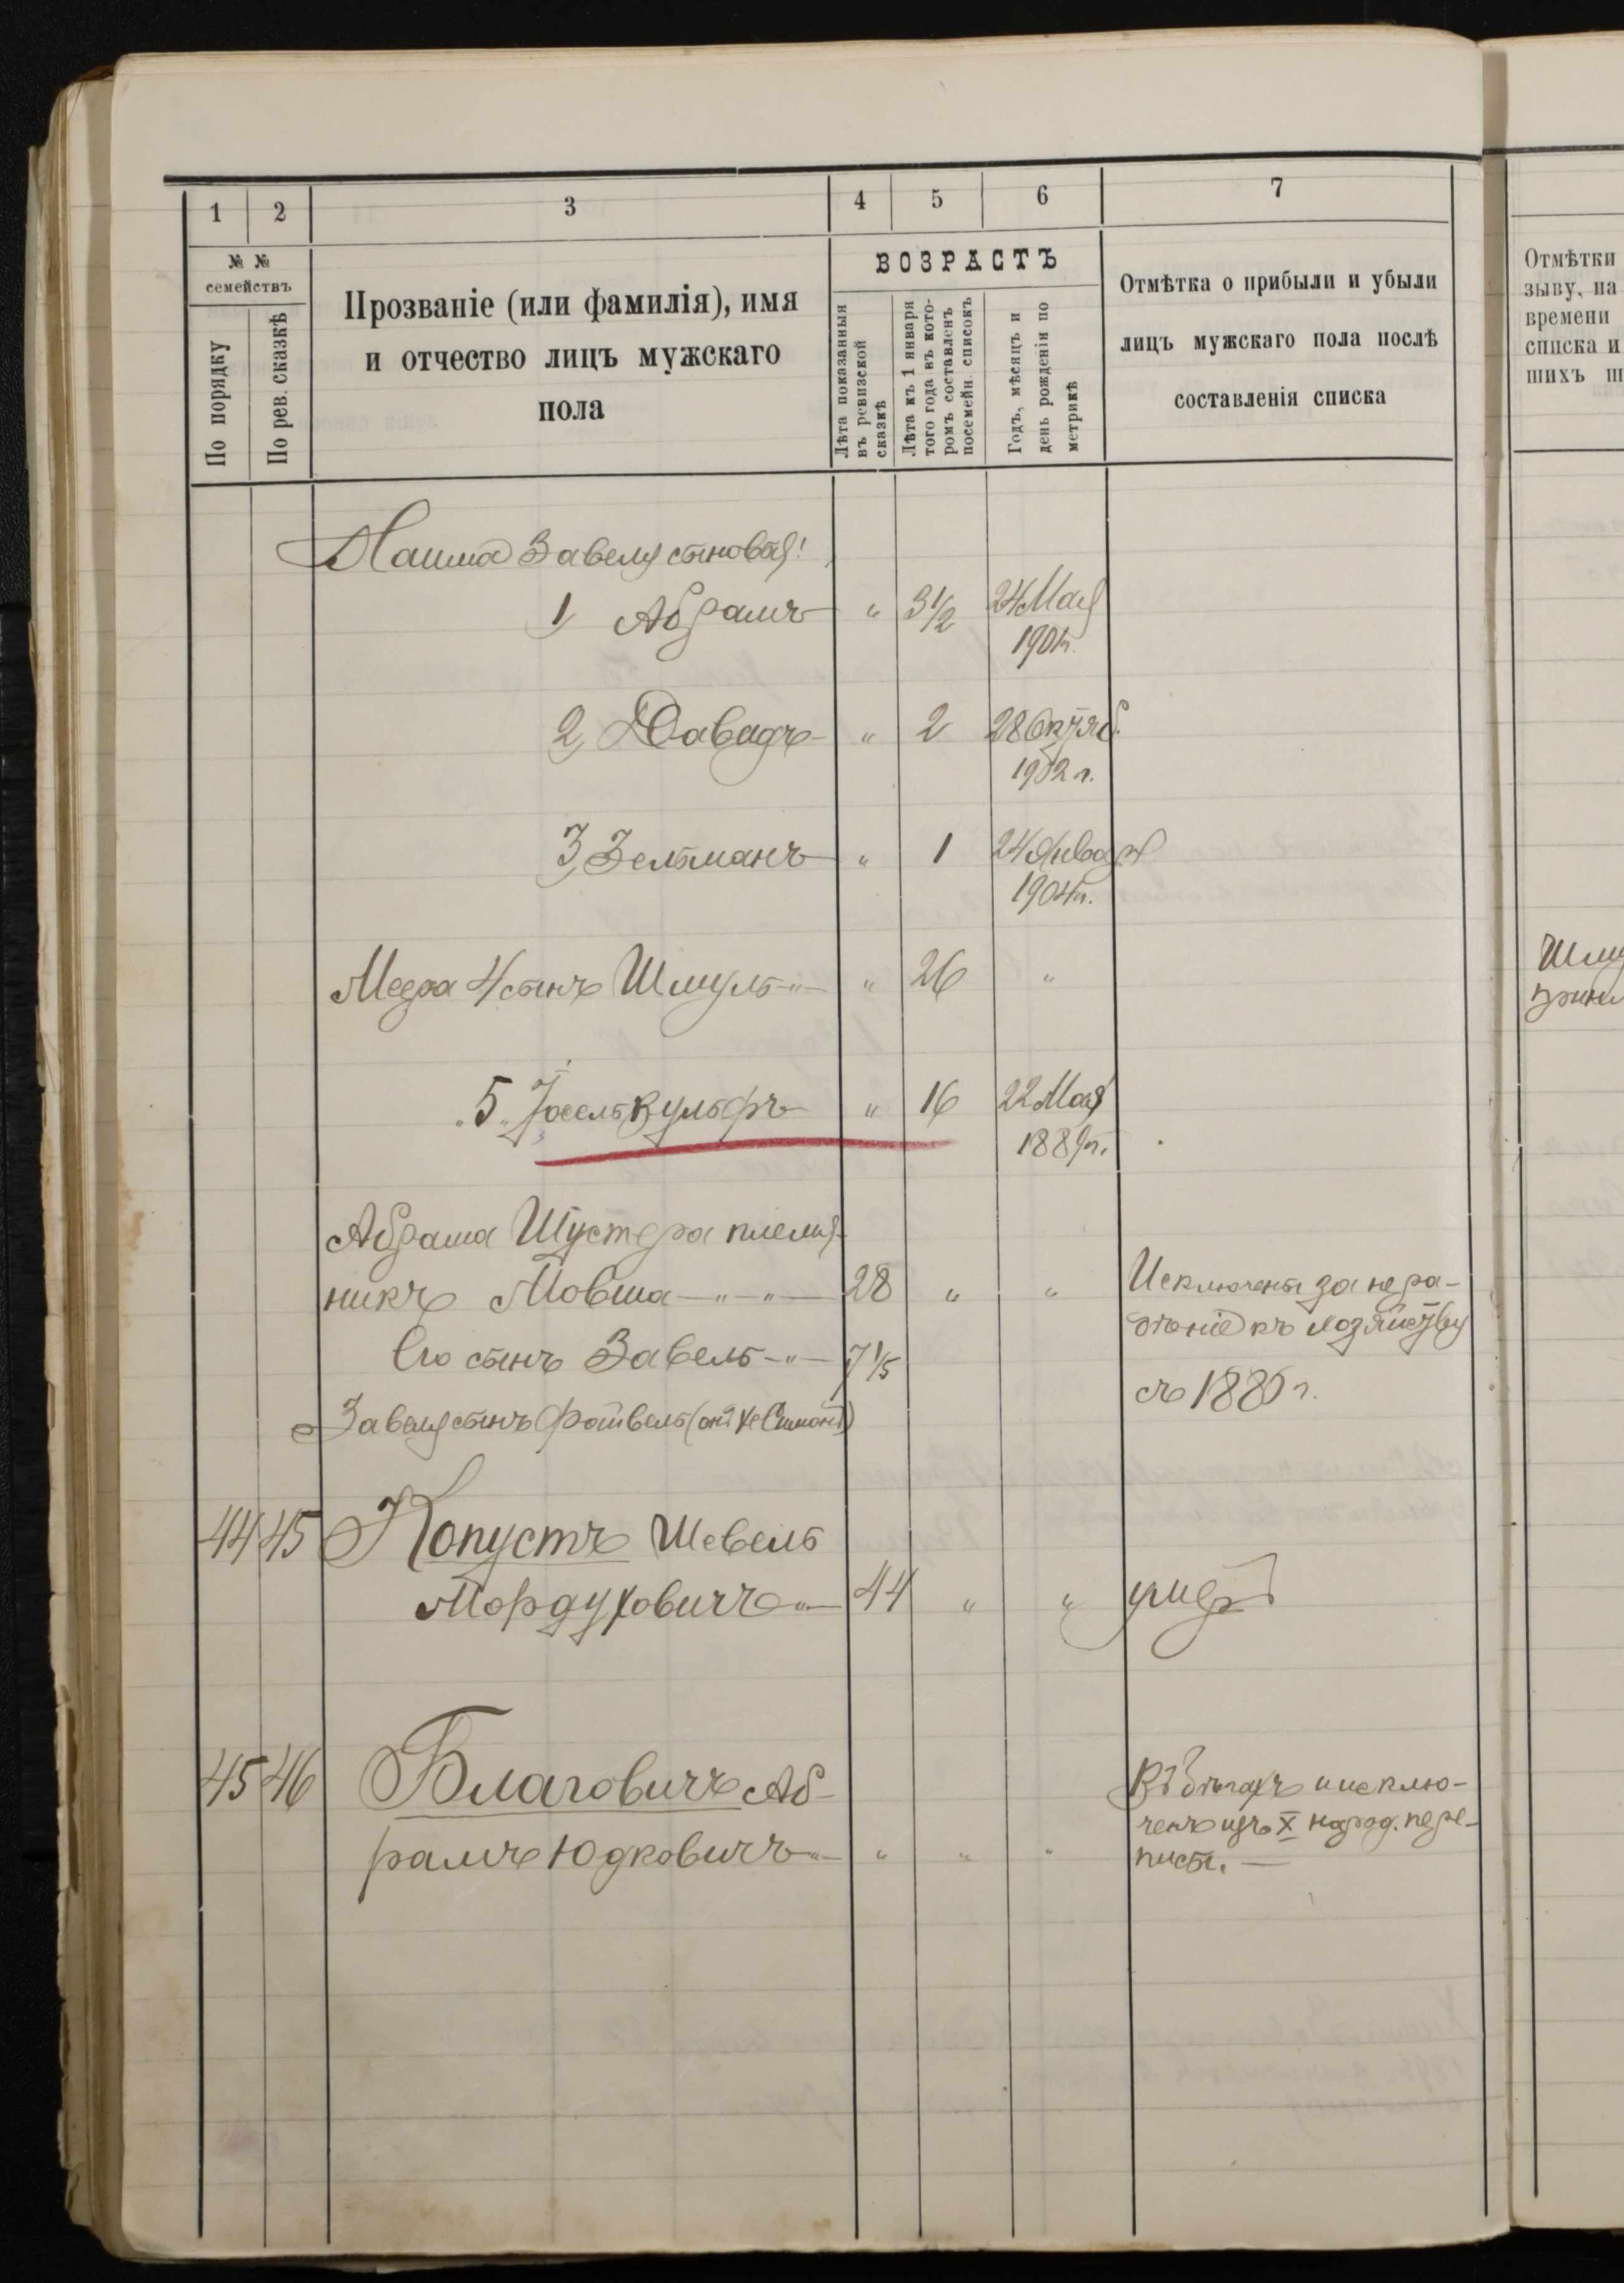 1 2 3 4 5 6 7
№ №
семействъ
По порядку
По рев. сказкѣ
Прозваніе (или фамилія), имя
и отчество лицъ мужскаго
пола
ВОЗРАСТЪ
Лѣта показанныя
въ ревизской
сказкѣ
Лѣта къ 1 января
того года въ кото-
ромъ составленъ
посемейн. списокъ
Годъ, мѣсяцъ и
день рожденія по
метрикѣ
Отмѣтка о прибыли и убыли
лицъ мужскаго пола послѣ
составленія списка
Завеля сыновья:
1, Абрамъ " 3 1/2 24 Мая
1901 г.
2, Давидъ " 2 28 Октяб.
1902 г.
3, Зельманъ " 1 24 Января
1904 г.
4 сынъ Шмуль " " 26 "
"5" Іосель Вульфъ " 16 22 Мая
1889 г.
Абрама Шустера племя-
никъ Мовша " " 28 " "
Его сынъ Завель " 7 1/5
Завеля сынъ Файвель (онъ же Симонъ)
Исключены за нера-
дѣніе къ хозяйству
съ 1880 г.
44 45 Копустъ Шевель
Мордуховичъ " 44 " " умеръ
45 46 Благовичъ Аб-
рамъ Юдковичъ " " " "
Въ бѣгахъ и исклю-
ченъ изъ X народ. пере-
писи. —
Отмѣтки
зыву, на
времени
списка и
шихъ